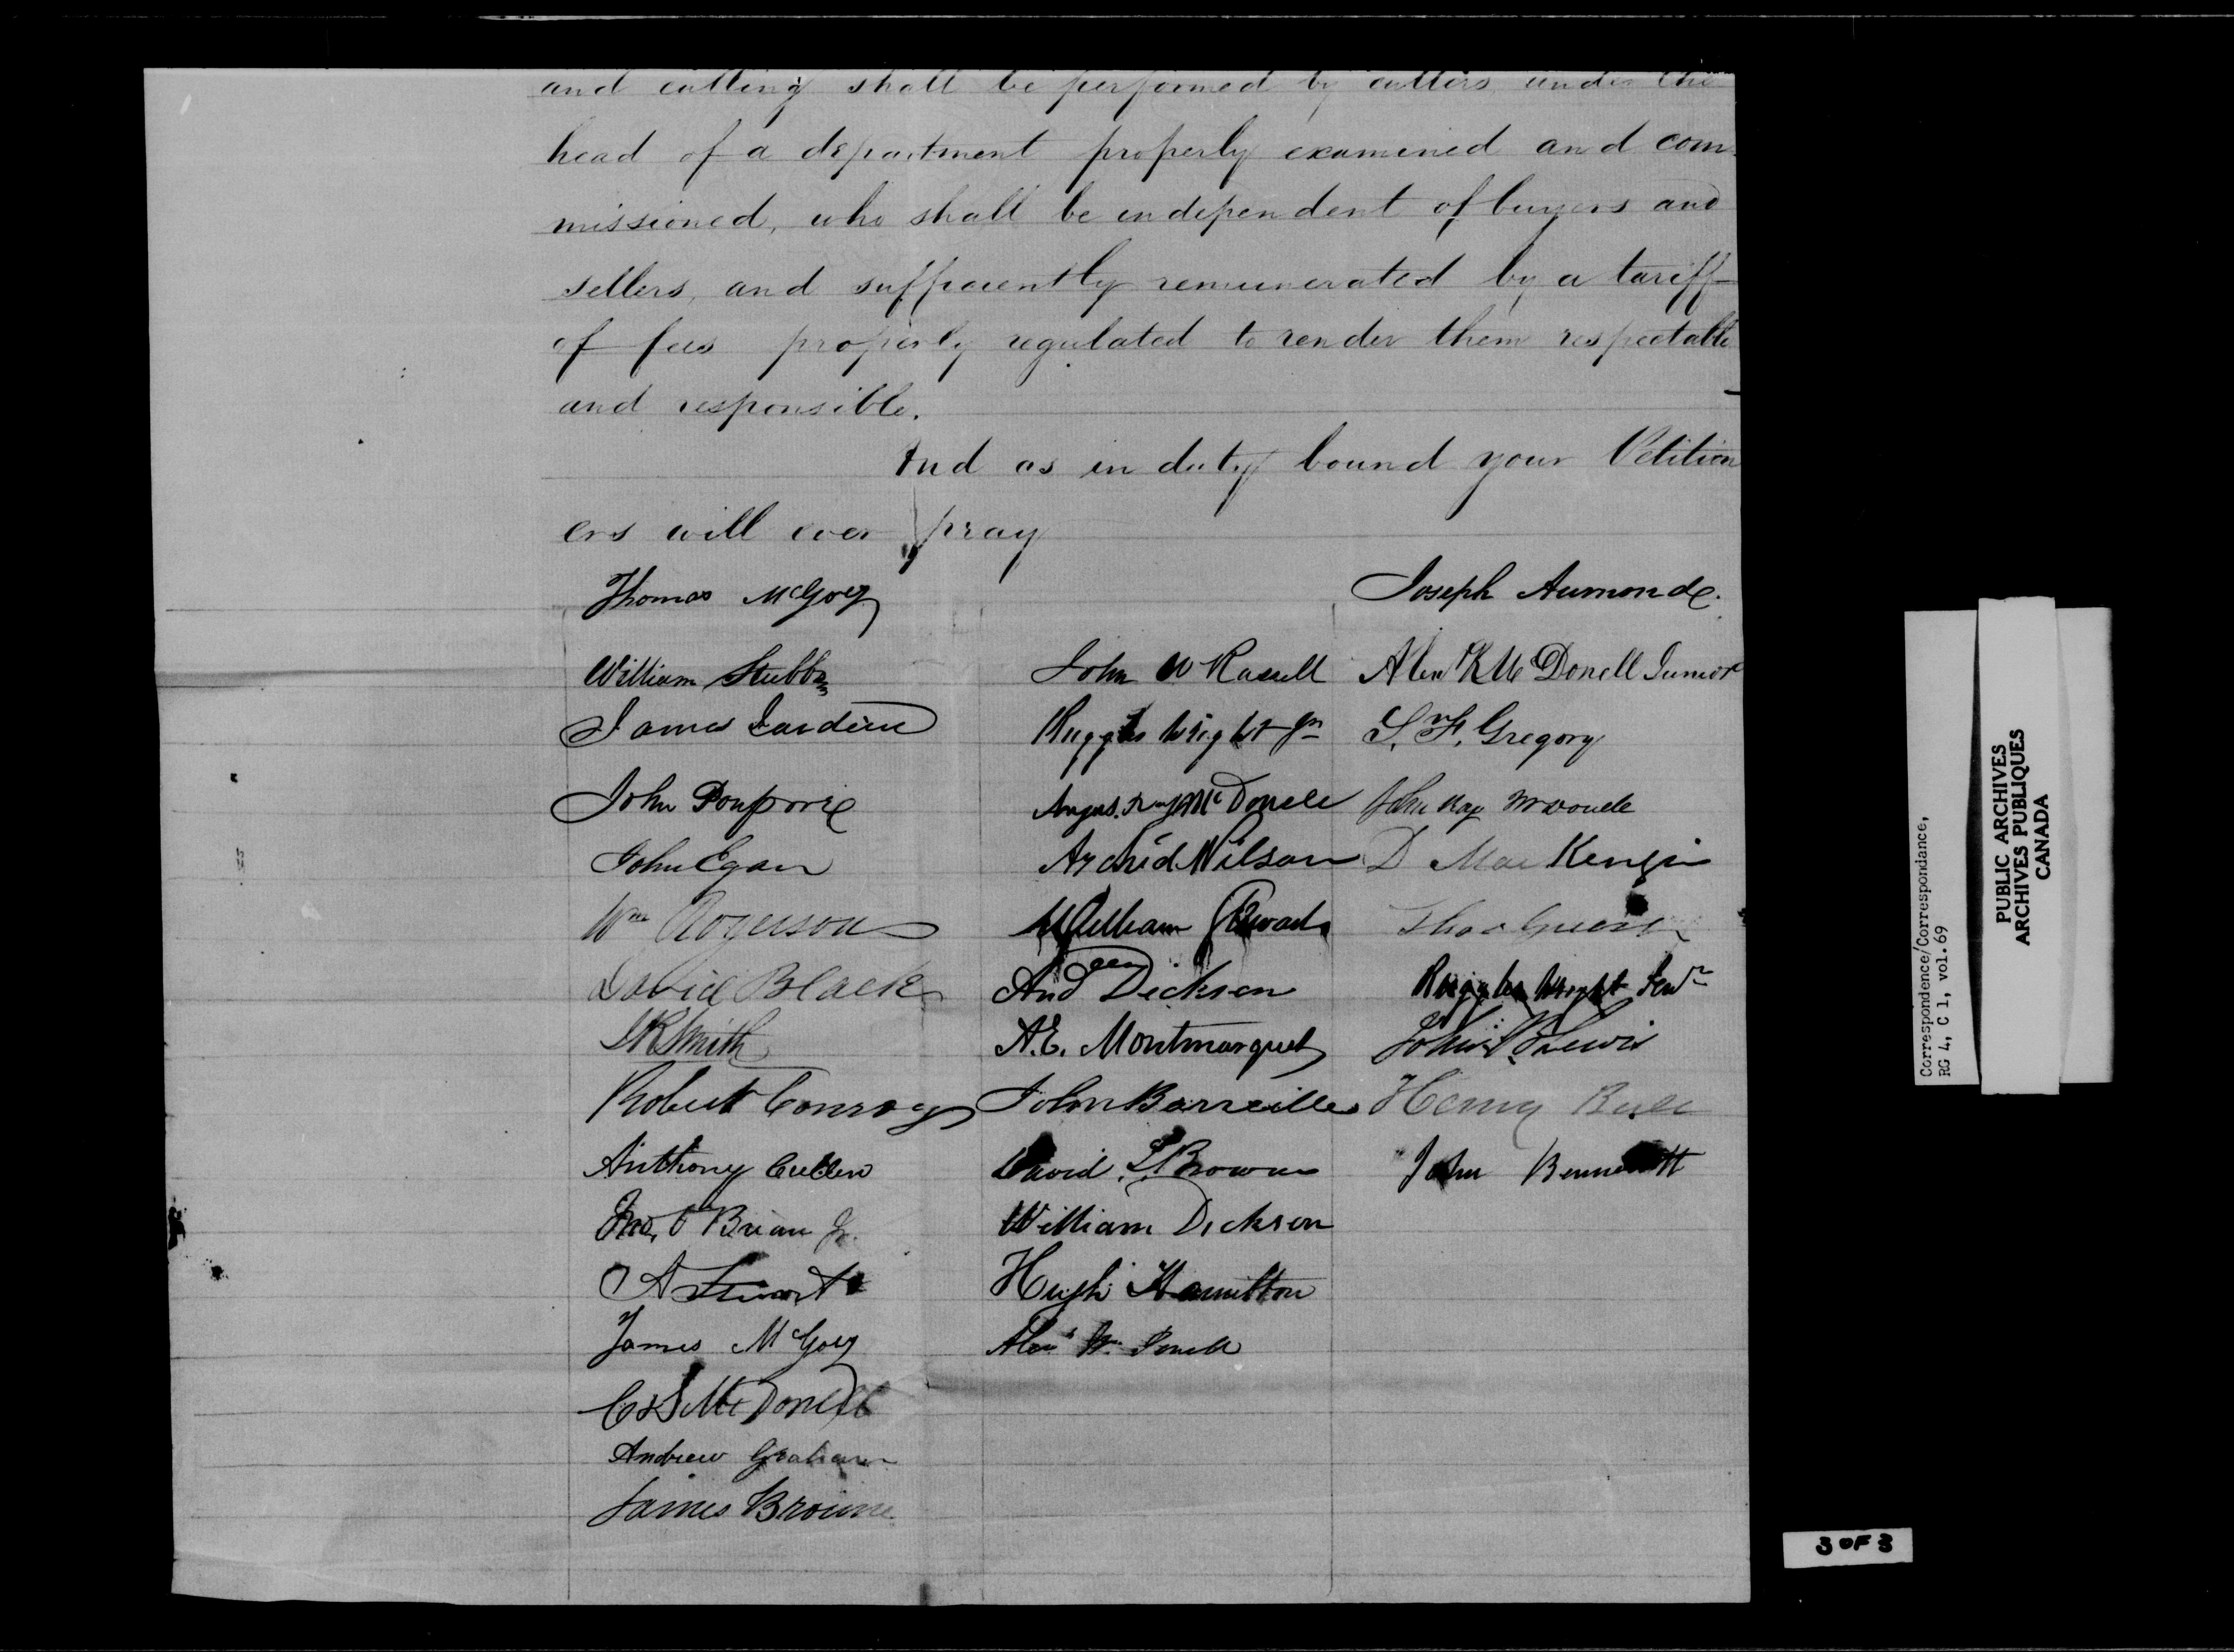 and culling shall be performed by cullers under the
head of a department properly examined and com
missioned, who shall be independent of buyers and
sellers, and sufficiently remunerated by a tariff
of fees properly regulated to render them respectable
and responsible.
And as in duty bound your Petition
ers will ever pray
Thomas McGoey
William Stubbs
James Jardine
John Poupore
John Egan
Wm Rogerson
David Black
Smith
Robert Conroy
Anthony Cullen
Jno, O Brian Jr.
A Stewart
James McGoey
McDonell
Andrew Graham
James Browne
John W Russell
Ruggles Wright Jn
Angus McDonell
Archid Wilson
William
And Dickson
A.E. Montmarquet
John Barreille
David L Browne
William Dickson
Hugh Hamilton
Joseph Aumonde.
McDonell Junior
S. F. Gregory
D MacKenzie
Thos Green
Ruggles Wright Senr
John Lewis
Henry
John Bennett
Correspondence/Correspondance,
RG 4, C 1, vol.69
PUBLIC ARCHIVES
ARCHIVES PUBLIQUES
CANADA
3 OF 3